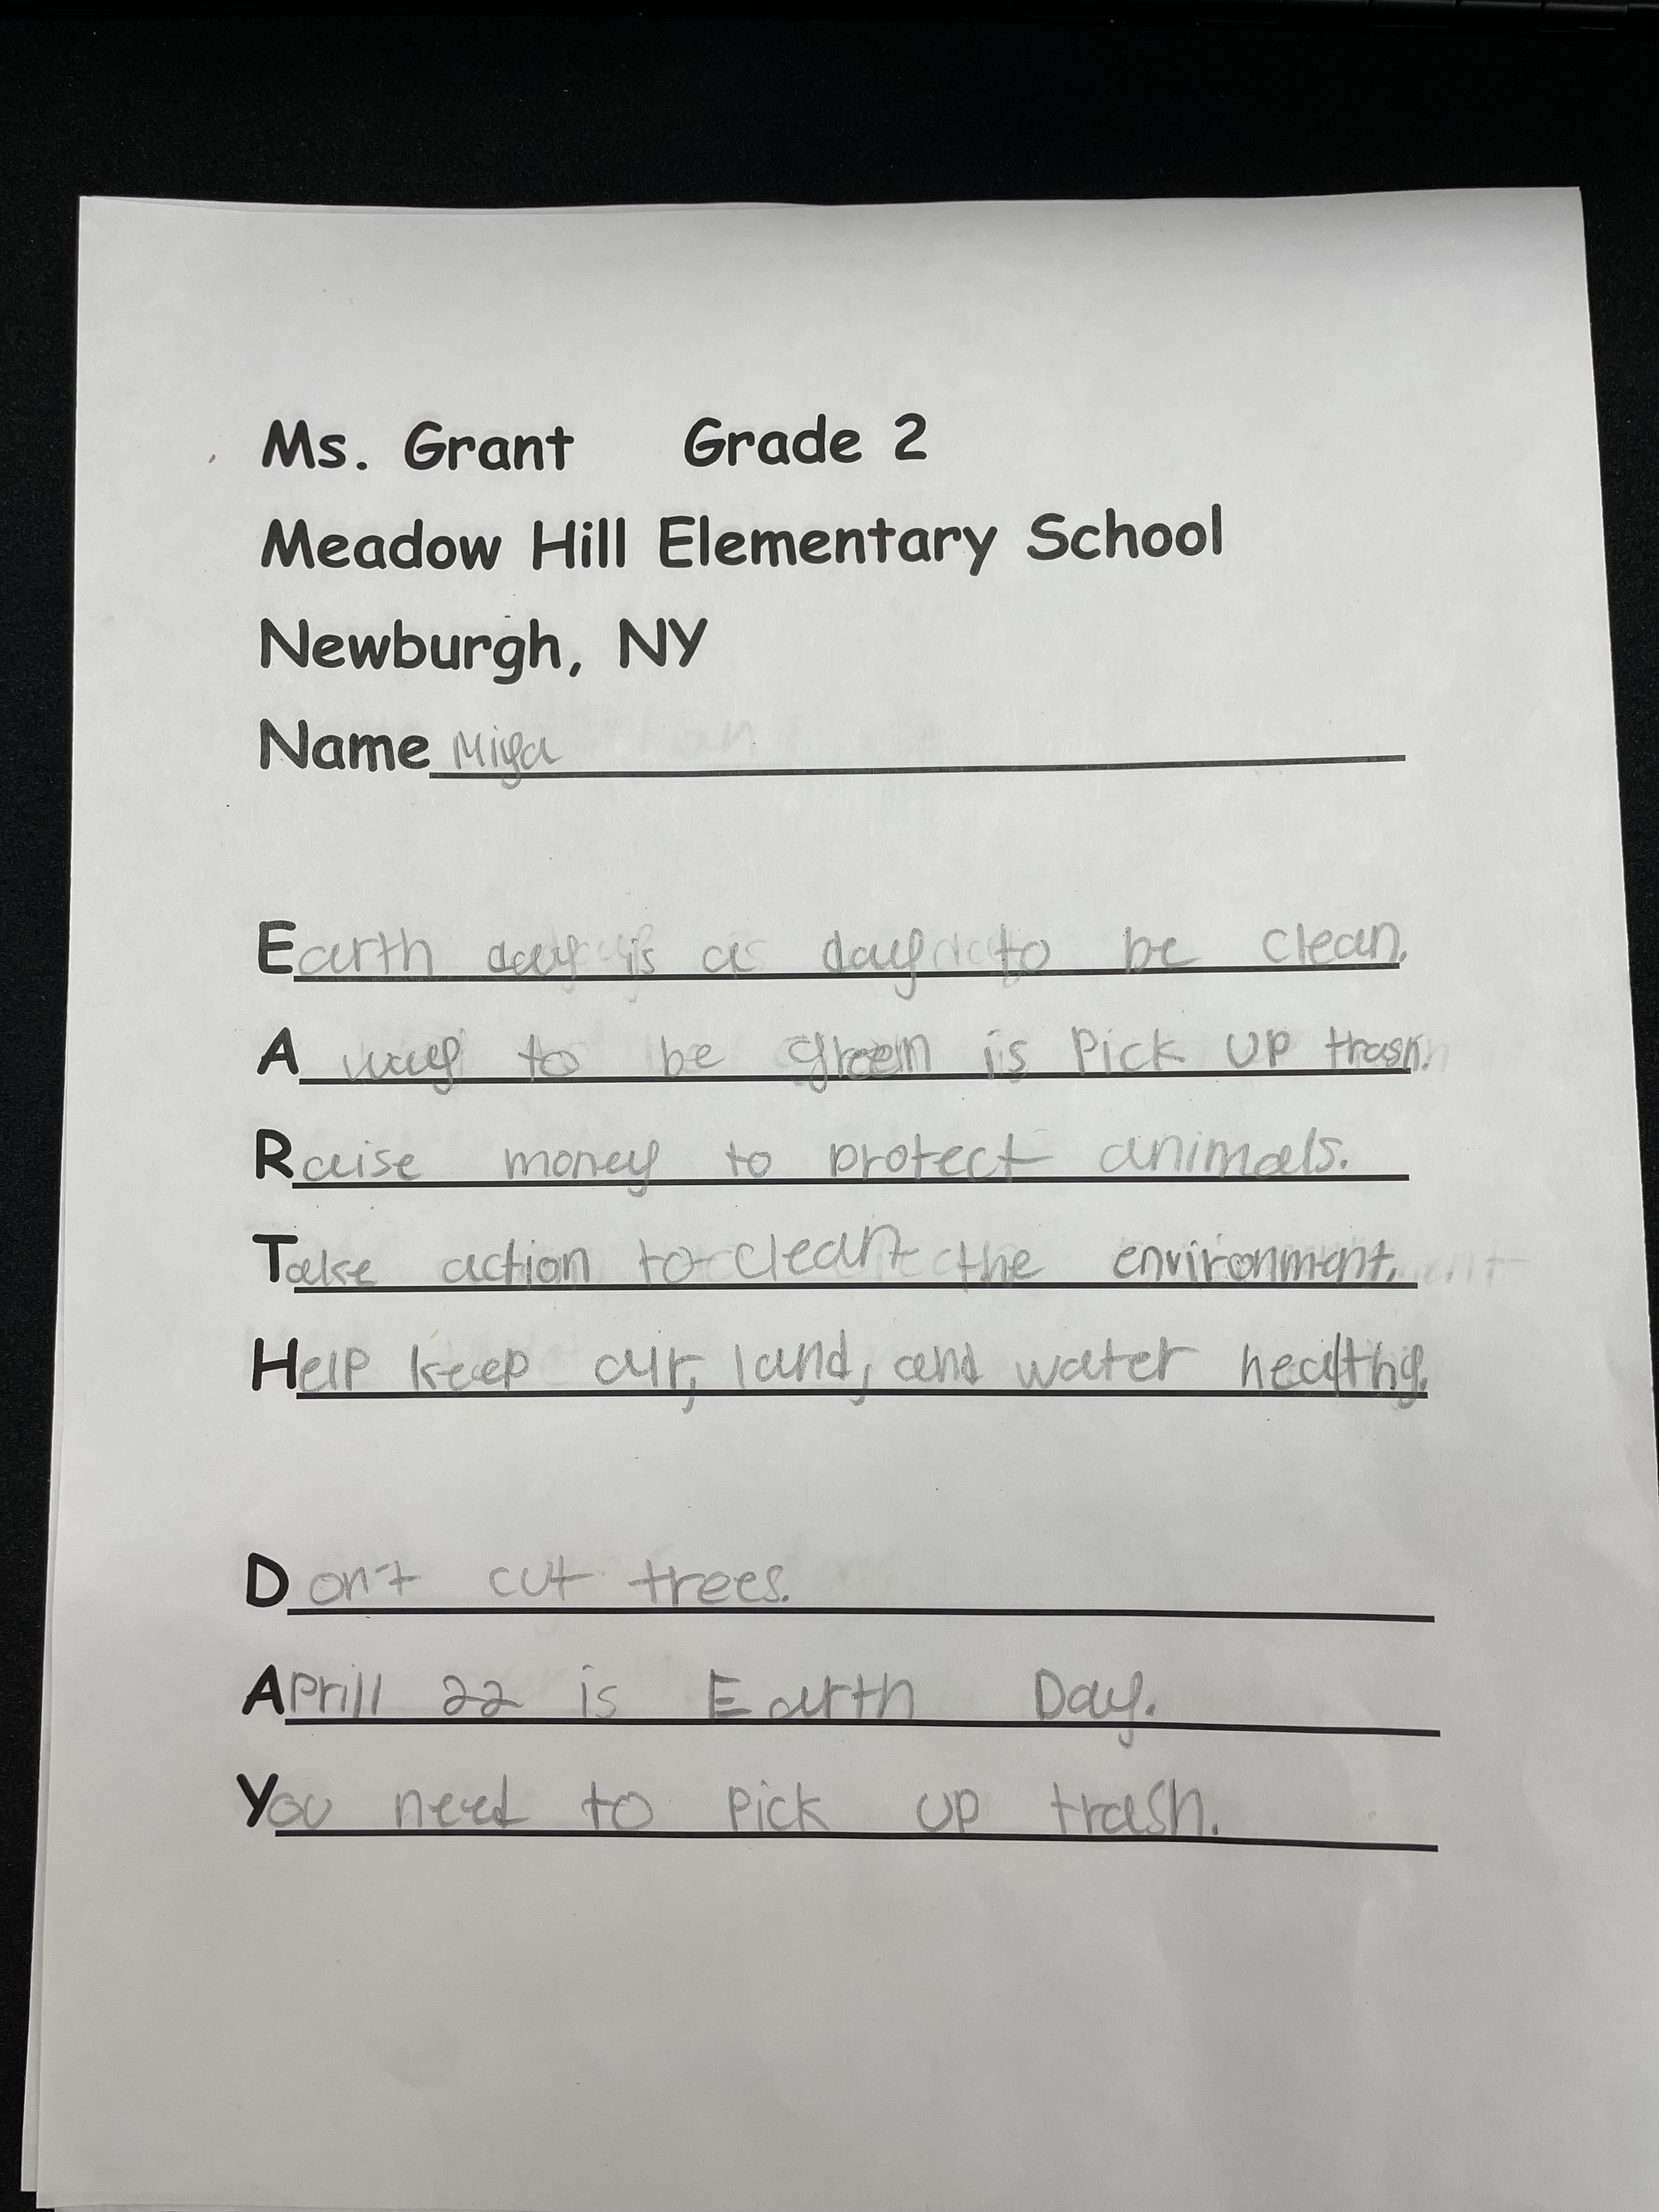 Ms. Grant Grade 2
Meadow Hill Elementary School
Newburgh, NY
Name Miya
Earth day is a day to be clean.
A way to be green is Pick up trash.
Raise money to protect animals.
Take action to clean the environment.
Help keep air, land, and water healthy.
Don't cut trees.
Aprill 22 is Earth Day.
You need to pick up trash.